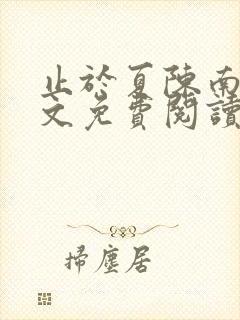 止於夏陳南
文免費閱讀
掃塵居